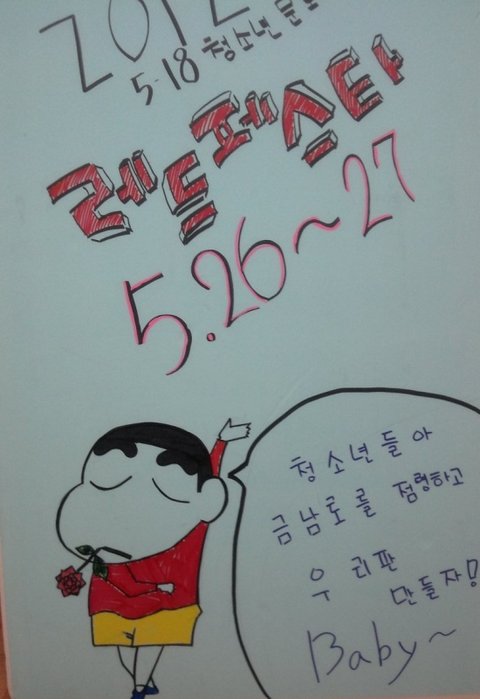 2012
5·18 청소년
레드페스타
5.26~27
청소년들아
금남로를 점령하고
우리판
만들자!
Baby~